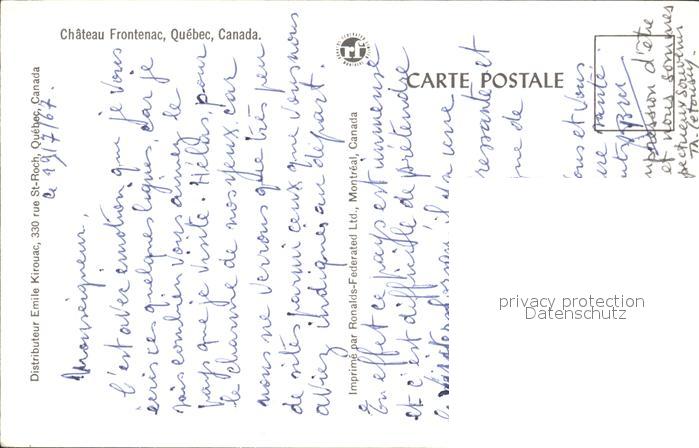 Château Frontenac, Québec, Canada.
Distributeur Emile Kirouac, 330 rue St-Roch, Québec, Canada
CARTE POSTALE
Imprimé par Ronalds-Federated Ltd., Montréal, Canada
rf
le 19/7/67.
Monseigneur,
C'est avec émotion que je vous
écris ces quelques lignes, car je
sais combien vous aimez le
pays que je visite. Hélas, pour
le charme de nos yeux car
nous ne verrons que très peu
de sites parmi ceux que vous nous
aviez indiqués au départ.
En effet ce pays est immense
et c'est difficile de prétendre
il s'en une
ressante et
que de
ous et vous
ne santé.
impression d'être
et nous sommes
privacy protection
Datenschutz